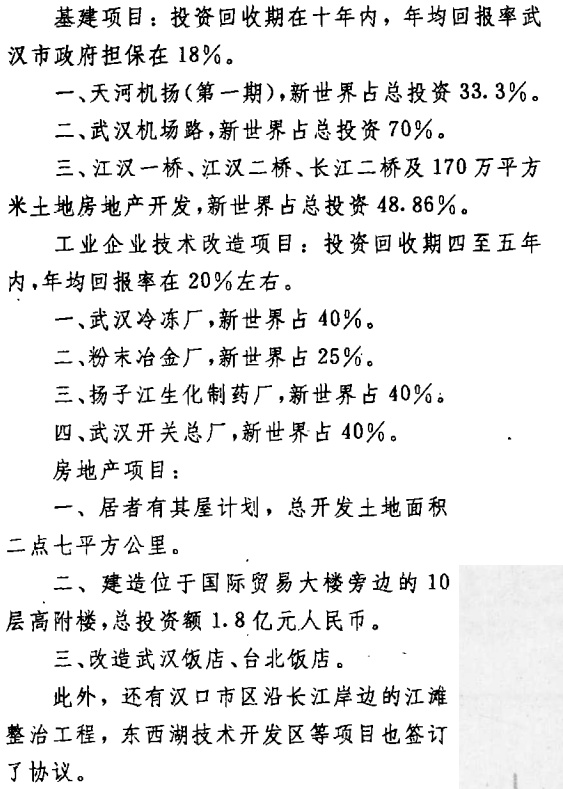 基建项目：投资回收期在十年内，年均回报率武
汉市政府担保在18%。
一、天河机扬(第一期)，新世界占总投资33.3%。
二、武汉机场路，新世界占总投资70%。
三、江汉一桥、江汉二桥、长江二桥及170万平方
米土地房地产开发，新世界占总投资48.86%。
工业企业技术改造项目：投资回收期四至五年
内，年均回报率在20%左右。
一、武汉冷冻厂，新世界占40%。
二、粉末冶金厂，新世界占25%。
三、扬子江生化制药厂，新世界占40%。
四、武汉开关总厂，新世界占40%。
房地产项目：
一、居者有其屋计划，总开发土地面积
二点七平方公里。
二、建造位于国际贸易大楼旁边的10
层高附楼，总投资额1.8亿元人民币。
三、改造武汉饭店、台北饭店。
此外，还有汉口市区沿长江岸边的江滩
整治工程，东西湖技术开发区等项目也签订
了协议。